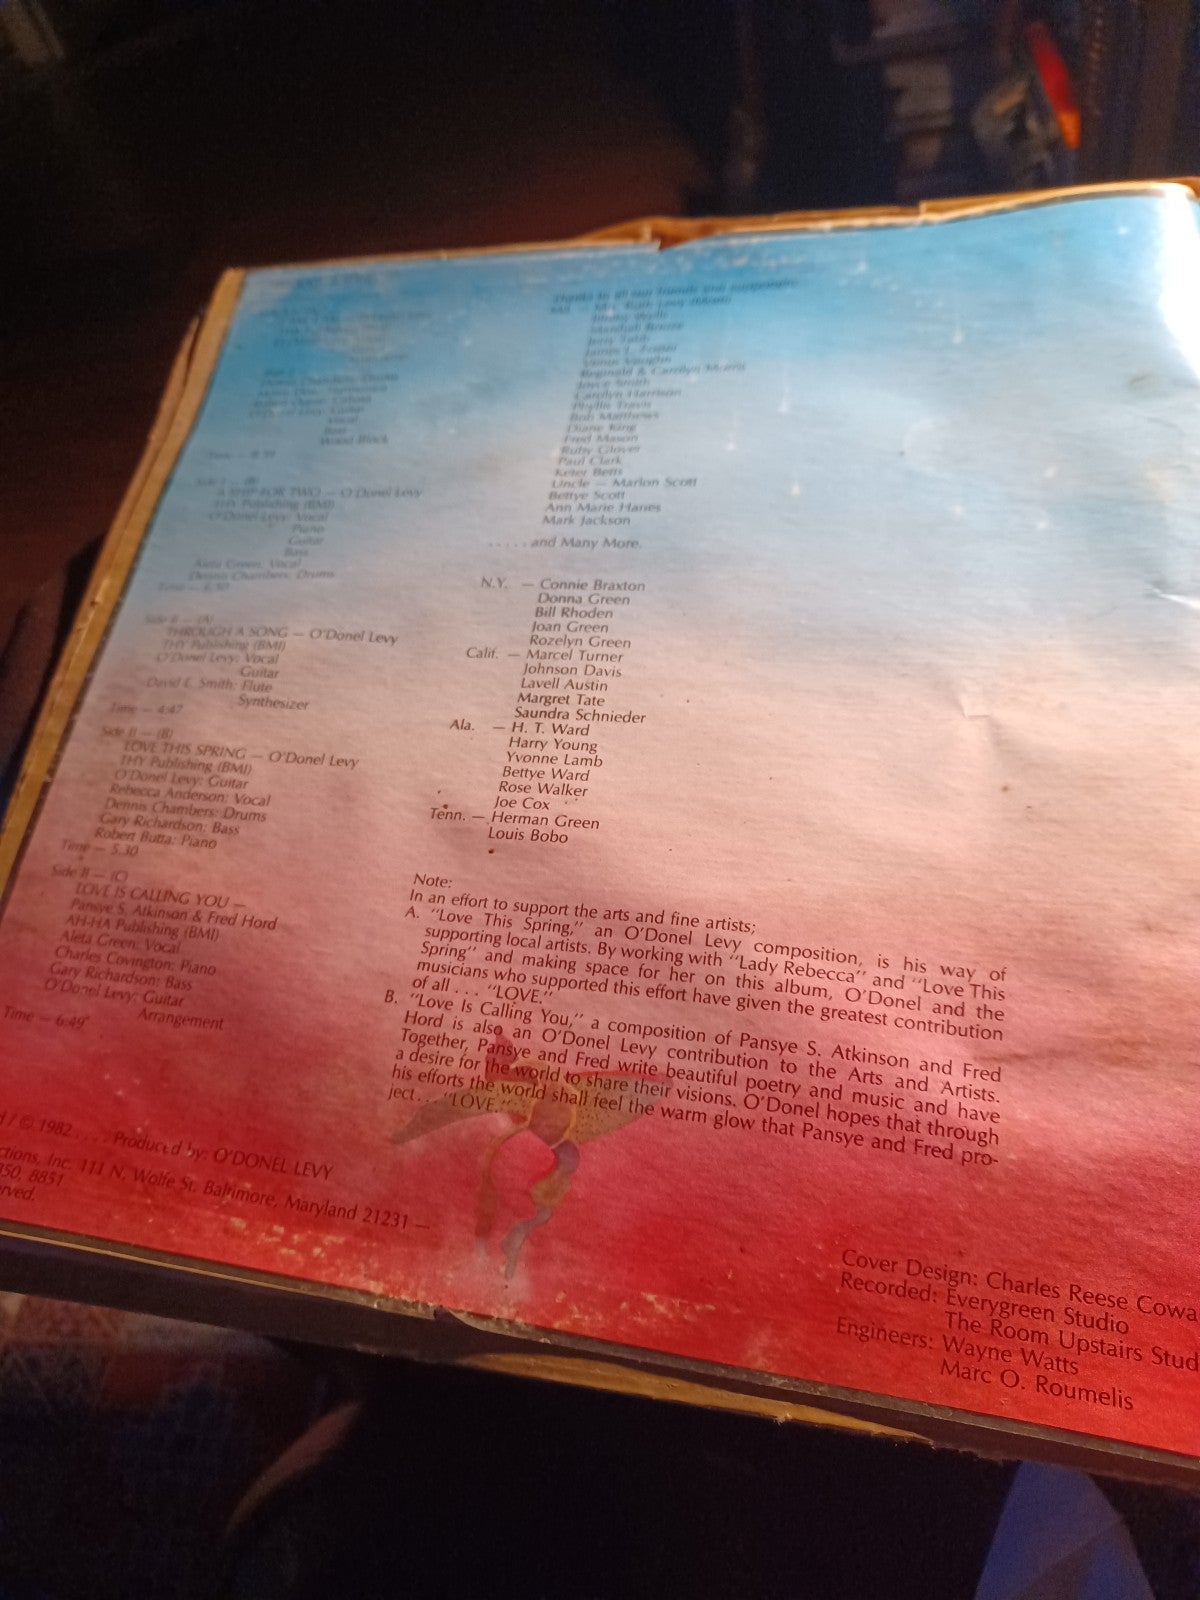 Dennis Chambers: Drums
O'Donel Levy: Guitar
Vocal
Bass
Wood Block
Side I — (B)
A SHIP FOR TWO — O'Donel Levy
THY Publishing (BMI)
O'Donel Levy: Vocal
Piano
Guitar
Bass
Aleta Green: Vocal
Dennis Chambers: Drums
Side II — (A)
THROUGH A SONG — O'Donel Levy
THY Publishing (BMI)
O'Donel Levy: Vocal
Guitar
David E. Smith: Flute
Synthesizer
Time — 4:47
Side II — (B)
LOVE THIS SPRING — O'Donel Levy
THY Publishing (BMI)
O'Donel Levy: Guitar
Rebecca Anderson: Vocal
Dennis Chambers: Drums
Gary Richardson: Bass
Robert Butta: Piano
Time — 5:30
Side II — (C)
LOVE IS CALLING YOU —
Pansye S. Atkinson & Fred Hord
AH-HA Publishing (BMI)
Aleta Green: Vocal
Charles Covington: Piano
Gary Richardson: Bass
O'Donel Levy: Guitar
Arrangement
Time — 6:49
/ © 1982 . . . . Produced by: O'DONEL LEVY
ctions, Inc. 111 N. Wolfe St. Baltimore, Maryland 21231 —
350, 8851
erved.
Thanks to all our friends and supporters
Reginald & Carolyn Morris
Joyce Smith
Carolyn Harrison
Phyllis Travis
Bob Matthews
Diane King
Fred Mason
Ruby Glover
Paul Clark
Keter Betts
Uncle — Marlon Scott
Bettye Scott
Ann Marie Hanes
Mark Jackson
. . . . . and Many More.
N.Y. — Connie Braxton
Donna Green
Bill Rhoden
Joan Green
Rozelyn Green
Calif. — Marcel Turner
Johnson Davis
Lavell Austin
Margret Tate
Saundra Schnieder
Ala. — H. T. Ward
Harry Young
Yvonne Lamb
Bettye Ward
Rose Walker
Joe Cox
Tenn. — Herman Green
Louis Bobo
Note:
In an effort to support the arts and fine artists;
A. "Love This Spring," an O'Donel Levy composition, is his way of
supporting local artists. By working with "Lady Rebecca" and "Love This
Spring" and making space for her on this album, O'Donel and the
musicians who supported this effort have given the greatest contribution
of all . . . "LOVE."
B. "Love Is Calling You," a composition of Pansye S. Atkinson and Fred
Hord is also an O'Donel Levy contribution to the Arts and Artists.
Together, Pansye and Fred write beautiful poetry and music and have
a desire for the world to share their visions. O'Donel hopes that through
his efforts the world shall feel the warm glow that Pansye and Fred pro-
ject. . . "LOVE."
Cover Design: Charles Reese Cowa
Recorded: Everygreen Studio
The Room Upstairs Stud
Engineers: Wayne Watts
Marc O. Roumelis